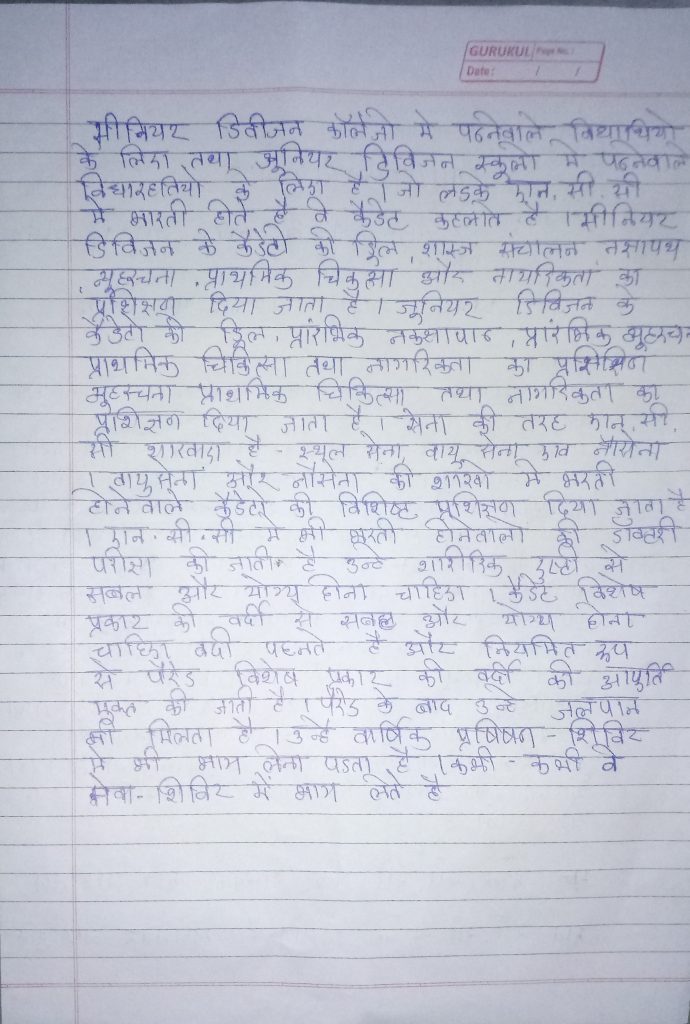 GURUKUL Page No.:
Date: / /
सीनियर डिवीजन कॉलेजो मे पढनेवाले विद्याथियो
के लिए तथा जुनियर डिविजन स्कूलो मे पढनेवाले
विद्यारहतियो के लिए है । जो लडके एन. सी. सी
मे भारती होते है वे कैडेट कहलाते है । सीनियर
डिविजन के कैडेटो को ड्रिल, शास्त्र संचालन नक्षापथ
, व्यूहरचना, प्राथमिक चिकुत्सा और नायरिकता का
प्रशिक्षण दिया जाता है । जुनियर डिविजन के
कैडेटो को ड्रिल, प्रारंभिक नकक्षापाठ, प्रारंभिक व्यूहरचना,
प्राथमिक चिकित्सा तथा नागरिकता का प्रशिक्षिण
व्यूहरचना प्राथमिक चिकित्सा तथा नागरिकता का
प्रशिक्षण दिया जाता है । सेना की तरह एन. सी.
सी शारवाए है - स्थल सेना, वायु सेना एव नौसेना
। वायुसेना और नौसेना की शाखो मे भरती
होनेवाले कैडेटो को विशिष्ट प्रशिक्षण दिया जाता है
। एन. सी. सी मे भी भरती होनेवालो की डाक्तरी
परीक्षा की जाती है उन्हे शारीरिक दृष्टी से
सबल और योग्य होना चाहिए । कैडेट विशेष
प्रकार की वर्दी से सबल और योग्य होना
चाहिए वर्दी पहनते है और नियमित रूप
से परेड विशेष प्रकार की वर्दी की आपुर्ति
मुक्त की जाती है । परेड के बाद उन्हे जलपान
भी मिलता है । उन्हे वार्षिक प्रषिषण - शिविर
मे भी भाग लेना पडता है । कभी - कभी वे
सेवा - शिविर में भाग लेते है